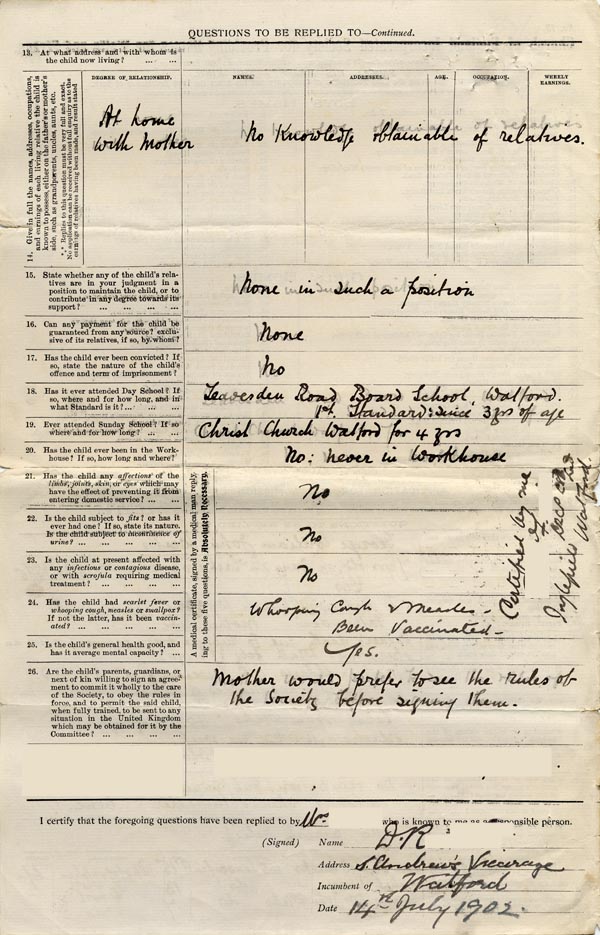 QUESTIONS TO BE REPLIED TO—Continued.
13. At what address and with whom is
the child now living? ... ...
14. Give in full the names, addresses, occupations,
and earnings of each living relative the child is
known to possess, either on the father's or mother's
side, such as grandparents, uncles, aunts, etc.
*** Replies to this question must be very full and exact.
No application can be received without full enquiry as to the
earnings of relatives having been made, and result stated
DEGREE OF RELATIONSHIP.
NAMES.
ADDRESSES.
AGE.
OCCUPATION.
WEEKLY
EARNINGS.
At home
with Mother
No Knowledge obtainable of relatives.
15. State whether any of the child's rela-
tives are in your judgment in a
position to maintain the child, or to
contribute in any degree towards its
support? ... ... ... ...
None in such a position
16. Can any payment for the child be
guaranteed from any source? exclu-
sive of its relatives, if so, by whom?
None
17. Has the child ever been convicted? If
so, state the nature of the child's
offence and term of imprisonment?
No
18. Has it ever attended Day School? If
so, where and for how long, and in
what Standard is it? ... ... ...
Leavesden Road Board School, Watford.
1st. Standard: since 3 yrs of age
19. Ever attended Sunday School? If so
where and for how long? ... ...
Christ Church Watford for 4 yrs
20. Has the child ever been in the Work-
house? If so, how long and where?
No: never in Workhouse
A medical certificate, signed by a medical man reply-
ing to these five questions, is Absolutely Necessary.
21. Has the child any affections of the
limbs, joints, skin, or eyes which may
have the effect of preventing it from
entering domestic service? ... ...
No
22. Is the child subject to fits? or has it
ever had one? If so, state its nature.
Is the child subject to incontinence of
urine? ... ... ... ... ...
No
23. Is the child at present affected with
any infectious or contagious disease,
or with scrofula requiring medical
treatment? ... ... ... ...
No
24. Has the child had scarlet fever or
whooping cough, measles or smallpox?
If not the latter, has it been vaccin-
ated? ... ... ... ... ...
Whooping Cough & Measles -
Been Vaccinated -
25. Is the child's general health good, and
has it average mental capacity? ...
Yes.
Certified by me
Watford.
26. Are the child's parents, guardians, or
next of kin willing to sign an agree-
ment to commit it wholly to the care
of the Society, to obey the rules in
force, and to permit the said child,
when fully trained, to be sent to any
situation in the United Kingdom
which may be obtained for it by the
Committee? ... ... ... ...
Mother would prefer to see the rules of
the Society before signing them.
I certify that the foregoing questions have been replied to by Mrs who is known to me as a responsible person.
(Signed) Name D.R
Address S. Andrew's Vicarage
Incumbent of Watford
Date 14th July 1902.